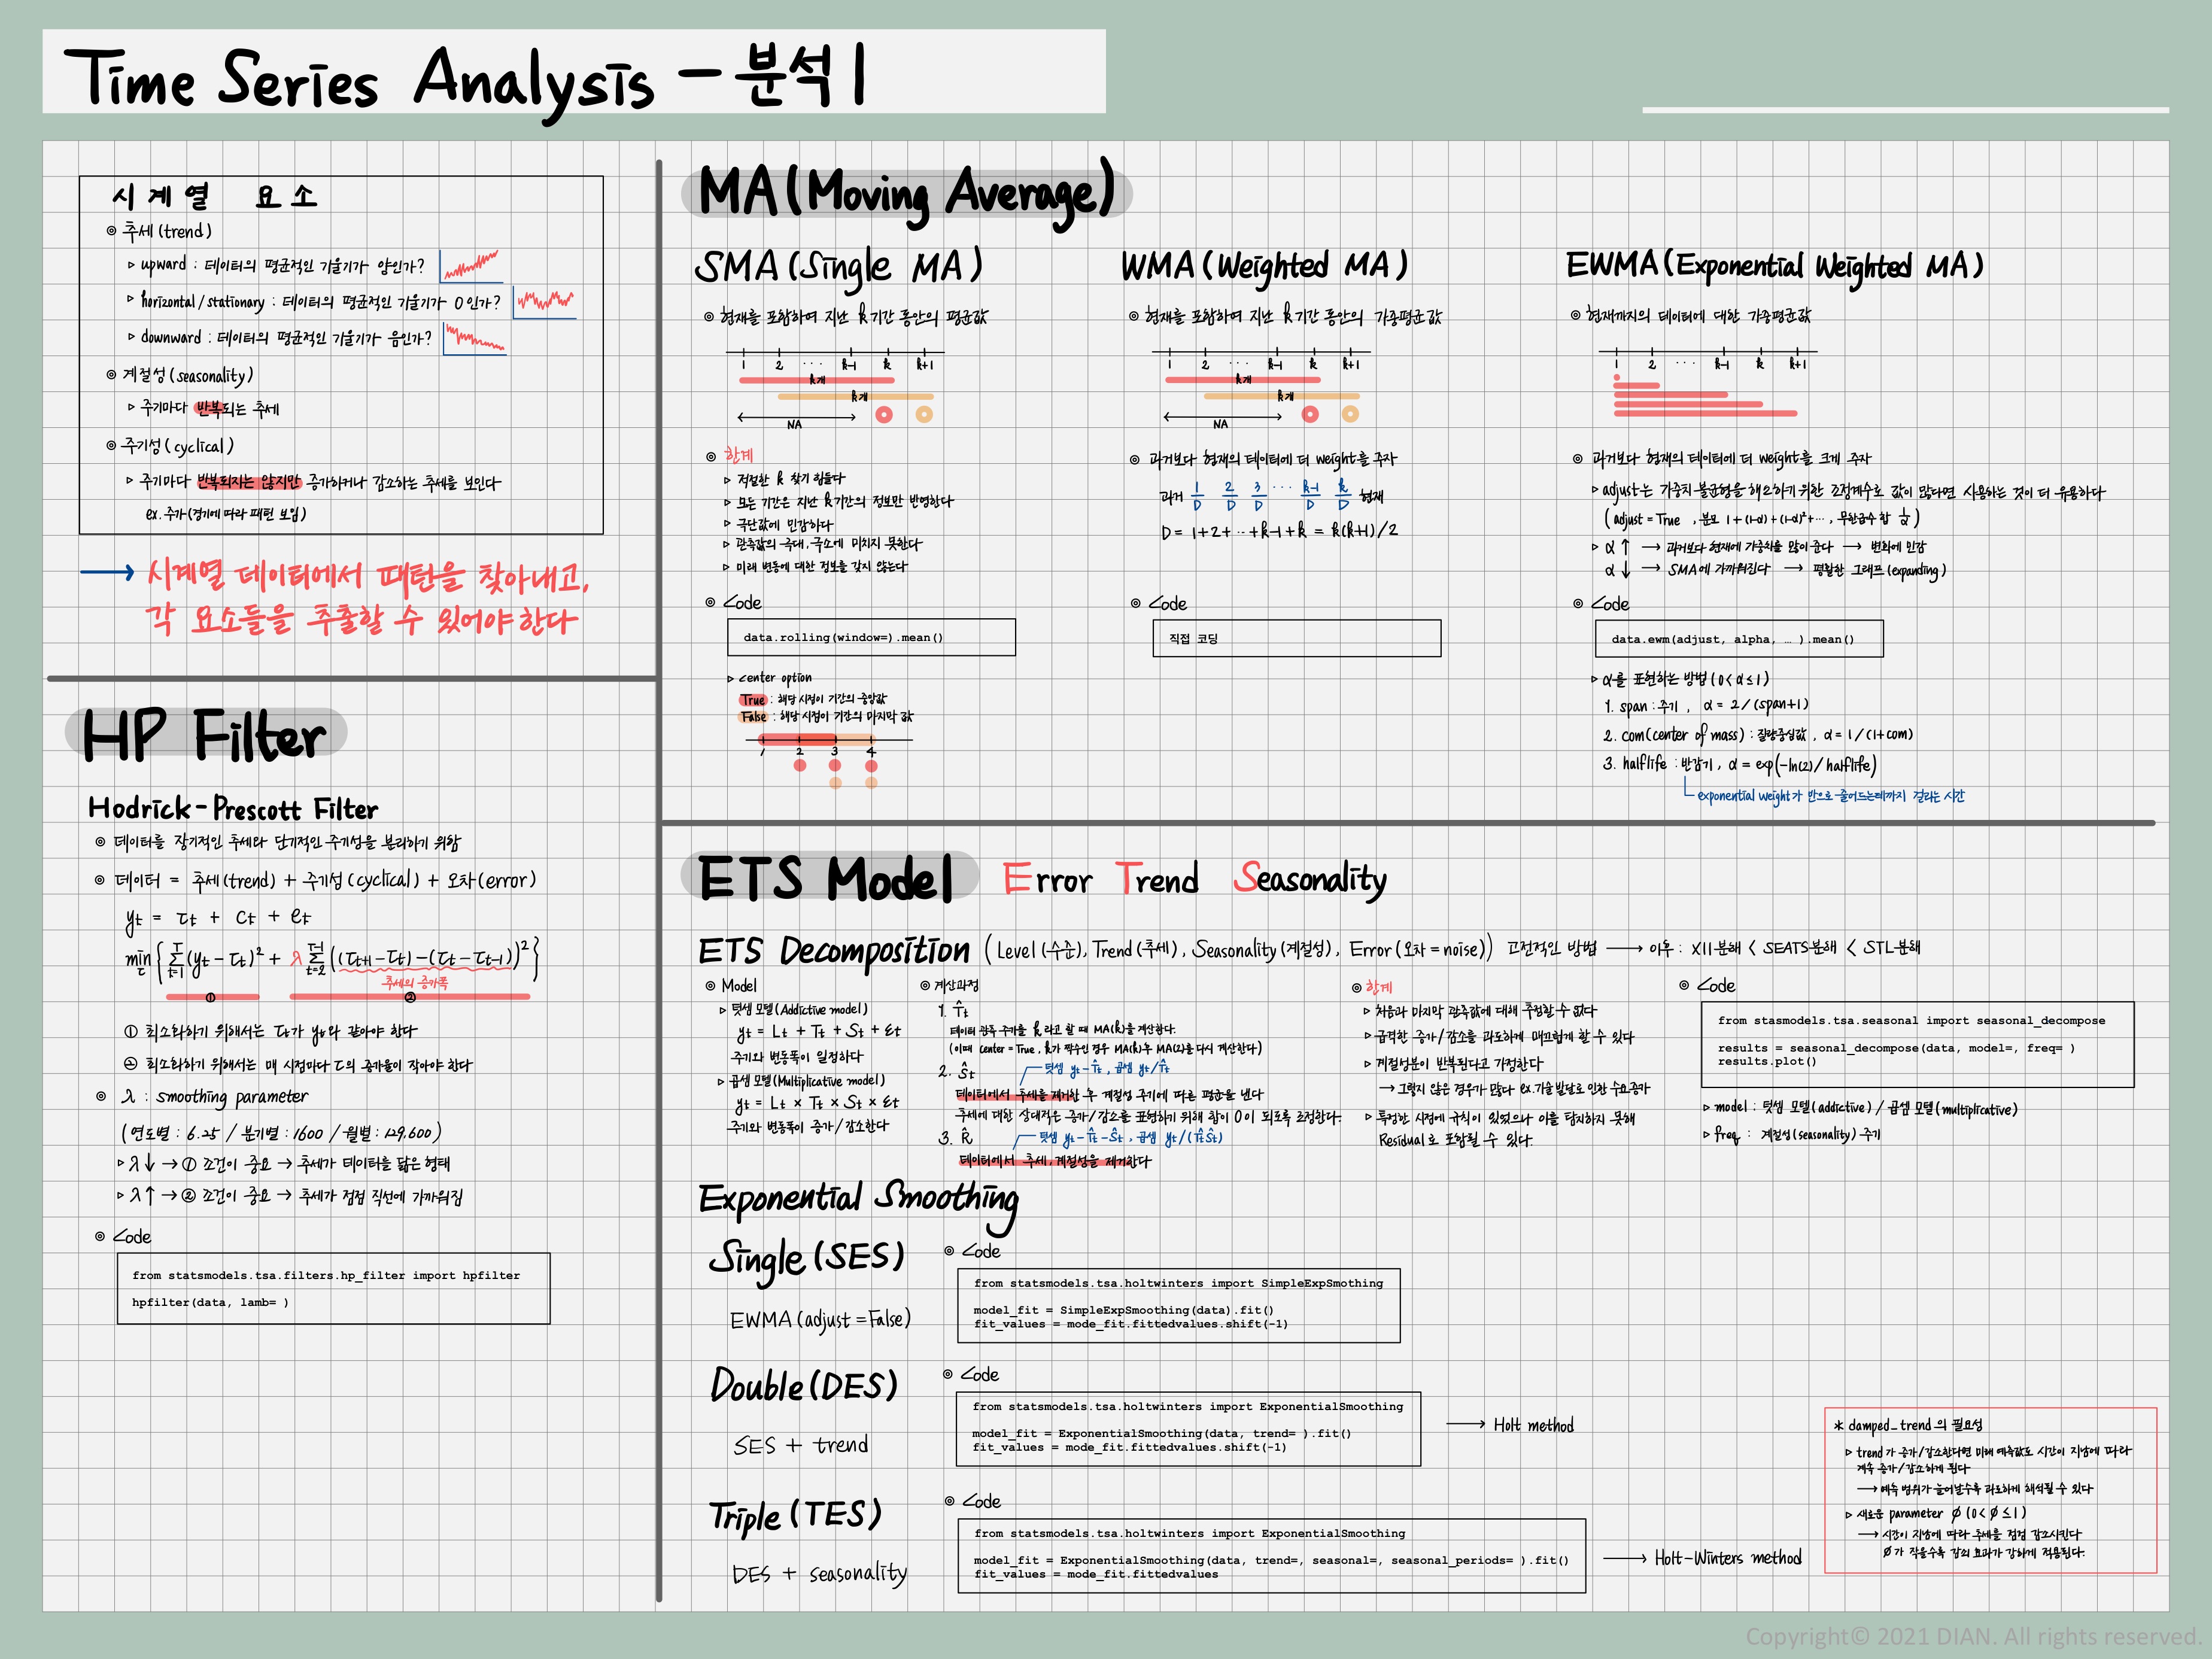 Time Series Analysis - 분석 1
시계열 요소
◎ 추세(trend)
▷ upward : 데이터의 평균적인 기울기가 양인가?
▷ horizontal/stationary : 데이터의 평균적인 기울기가 0인가?
▷ downward : 데이터의 평균적인 기울기가 음인가?
◎ 계절성(seasonality)
▷ 주기마다 반복되는 추세
◎ 주기성(cyclical)
▷ 주기마다 반복되지는 않지만 증가하거나 감소하는 추세를 보인다
ex. 주가(경기에 따라 패턴 보임)
→ 시계열 데이터에서 패턴을 찾아내고,
각 요소들을 추출할 수 있어야 한다
HP Filter
Hodrick-Prescott Filter
◎ 데이터를 장기적인 추세와 단기적인 주기성을 분리하기 위함
◎ 데이터 = 추세(trend) + 주기성(cyclical) + 오차(error)
yt = τt + ct + et
min τ { Σ t=1 T (yt - τt)² + λ Σ t=2 T-1 ((τt+1 - τt) - (τt - τt-1))² }
추세의 증가폭
① ②
① 최소화하기 위해서는 τt가 yt와 같아야 한다
② 최소화하기 위해서는 매 시점마다 τ의 증가율이 작아야 한다
◎ λ : smoothing parameter
(연도별 : 6.25 / 분기별 : 1600 / 월별 : 129,600)
▷ λ↓ → ① 조건이 중요 → 추세가 데이터를 닮은 형태
▷ λ↑ → ② 조건이 중요 → 추세가 점점 직선에 가까워짐
◎ Code
from statsmodels.tsa.filters.hp_filter import hpfilter
hpfilter(data, lamb= )
MA(Moving Average)
SMA(Single MA)
◎ 현재를 포함하여 지난 k기간 동안의 평균값
1 2 ··· k-1 k k+1
k개
k개
NA
◎ 한계
▷ 적절한 k 찾기 힘들다
▷ 모든 기간은 지난 k기간의 정보만 반영한다
▷ 극단값에 민감하다
▷ 관측값의 극대, 극소에 미치지 못한다
▷ 미래 변동에 대한 정보를 갖지 않는다
◎ Code
data.rolling(window=).mean()
▷ center option
True : 해당 시점이 기간의 중앙값
False : 해당 시점이 기간의 마지막 값
1 2 3 4
WMA(Weighted MA)
◎ 현재를 포함하여 지난 k기간 동안의 가중평균값
1 2 ··· k-1 k k+1
k개
k개
NA
◎ 과거보다 현재의 데이터에 더 weight를 주자
과거 1/D 2/D 3/D ··· k-1/D k/D 현재
D = 1+2+ ·· +k-1+k = k(k+1)/2
◎ Code
직접 코딩
EWMA(Exponential Weighted MA)
◎ 현재까지의 데이터에 대한 가중평균값
1 2 ··· k-1 k k+1
◎ 과거보다 현재의 데이터에 더 weight를 크게 주자
▷ adjust는 가중치 불균형을 해소하기 위한 조정계수로 값이 많다면 사용하는 것이 더 유용하다
(adjust = True , 분모 1+(1-α)+(1-α)²+··· , 무한급수 합 1/α)
▷ α↑ → 과거보다 현재에 가중치를 많이 준다 → 변화에 민감
α↓ → SMA에 가까워진다 → 평활한 그래프(expanding)
◎ Code
data.ewm(adjust, alpha, … ).mean()
▷ α를 표현하는 방법(0<α≤1)
1. span : 주기 , α = 2/(span+1)
2. com(center of mass) : 질량중심값 , α = 1/(1+com)
3. halflife : 반감기 , α = exp(-ln(2)/halflife)
exponential weight가 반으로 줄어드는데까지 걸리는 시간
ETS Model Error Trend Seasonality
ETS Decomposition (Level(수준), Trend(추세), Seasonality(계절성), Error(오차=noise)) 고전적인 방법 → 이후 : X11분해 < SEATS분해 < STL분해
◎ Model
▷ 덧셈 모델(Addictive model)
yt = Lt + Tt + St + εt
주기와 변동폭이 일정하다
▷ 곱셈 모델(Multiplicative model)
yt = Lt × Tt × St × εt
주기와 변동폭이 증가/감소한다
◎ 계산과정
1. T̂t
데이터 관측 주기를 k라고 할 때 MA(k)를 계산한다.
(이때 center = True, k가 짝수인 경우 MA(k)후 MA(2)를 다시 계산한다)
2. Ŝt 덧셈 yt-T̂t , 곱셈 yt/T̂t
데이터에서 추세를 제거한 후 계절성 주기에 따른 평균을 낸다
추세에 대한 상대적은 증가/감소를 표현하기 위해 합이 0이 되도록 조정한다.
3. R̂ 덧셈 yt-T̂t-Ŝt , 곱셈 yt/(T̂tŜt)
데이터에서 추세, 계절성을 제거한다
◎ 한계
▷ 처음과 마지막 관측값에 대해 추정할 수 없다
▷ 급격한 증가/감소를 과도하게 매끄럽게 할 수 있다
▷ 계절성분이 반복된다고 가정한다
→ 그렇지 않은 경우가 많다 ex. 기술 발달로 인한 수요증가
▷ 특정한 시점에 규칙이 있었으나 이를 탐지하지 못해
Residual로 포함될 수 있다.
◎ Code
from stasmodels.tsa.seasonal import seasonal_decompose
results = seasonal_decompose(data, model=, freq= )
results.plot()
▷ model : 덧셈 모델(addictive) / 곱셈 모델(multiplicative)
▷ freq : 계절성(seasonality) 주기
Exponential Smoothing
Single(SES)
EWMA(adjust=False)
◎ Code
from statsmodels.tsa.holtwinters import SimpleExpSmothing
model_fit = SimpleExpSmoothing(data).fit()
fit_values = mode_fit.fittedvalues.shift(-1)
Double(DES)
SES + trend
◎ Code
from statsmodels.tsa.holtwinters import ExponentialSmoothing
model_fit = ExponentialSmoothing(data, trend= ).fit()
fit_values = mode_fit.fittedvalues.shift(-1)
→ Holt method
Triple(TES)
DES + seasonality
◎ Code
from statsmodels.tsa.holtwinters import ExponentialSmoothing
model_fit = ExponentialSmoothing(data, trend=, seasonal=, seasonal_periods= ).fit()
fit_values = mode_fit.fittedvalues
→ Holt-Winters method
* damped_trend의 필요성
▷ trend가 증가/감소한다면 미래 예측값도 시간이 지남에 따라
계속 증가/감소하게 된다
→ 예측 범위가 늘어날수록 과도하게 해석될 수 있다
▷ 새로운 parameter ∅(0<∅≤1)
→ 시간이 지남에 따라 추세를 점점 감소시킨다
∅가 작을수록 감쇠 효과가 강하게 적용된다.
Copyright© 2021 DIAN. All rights reserved.